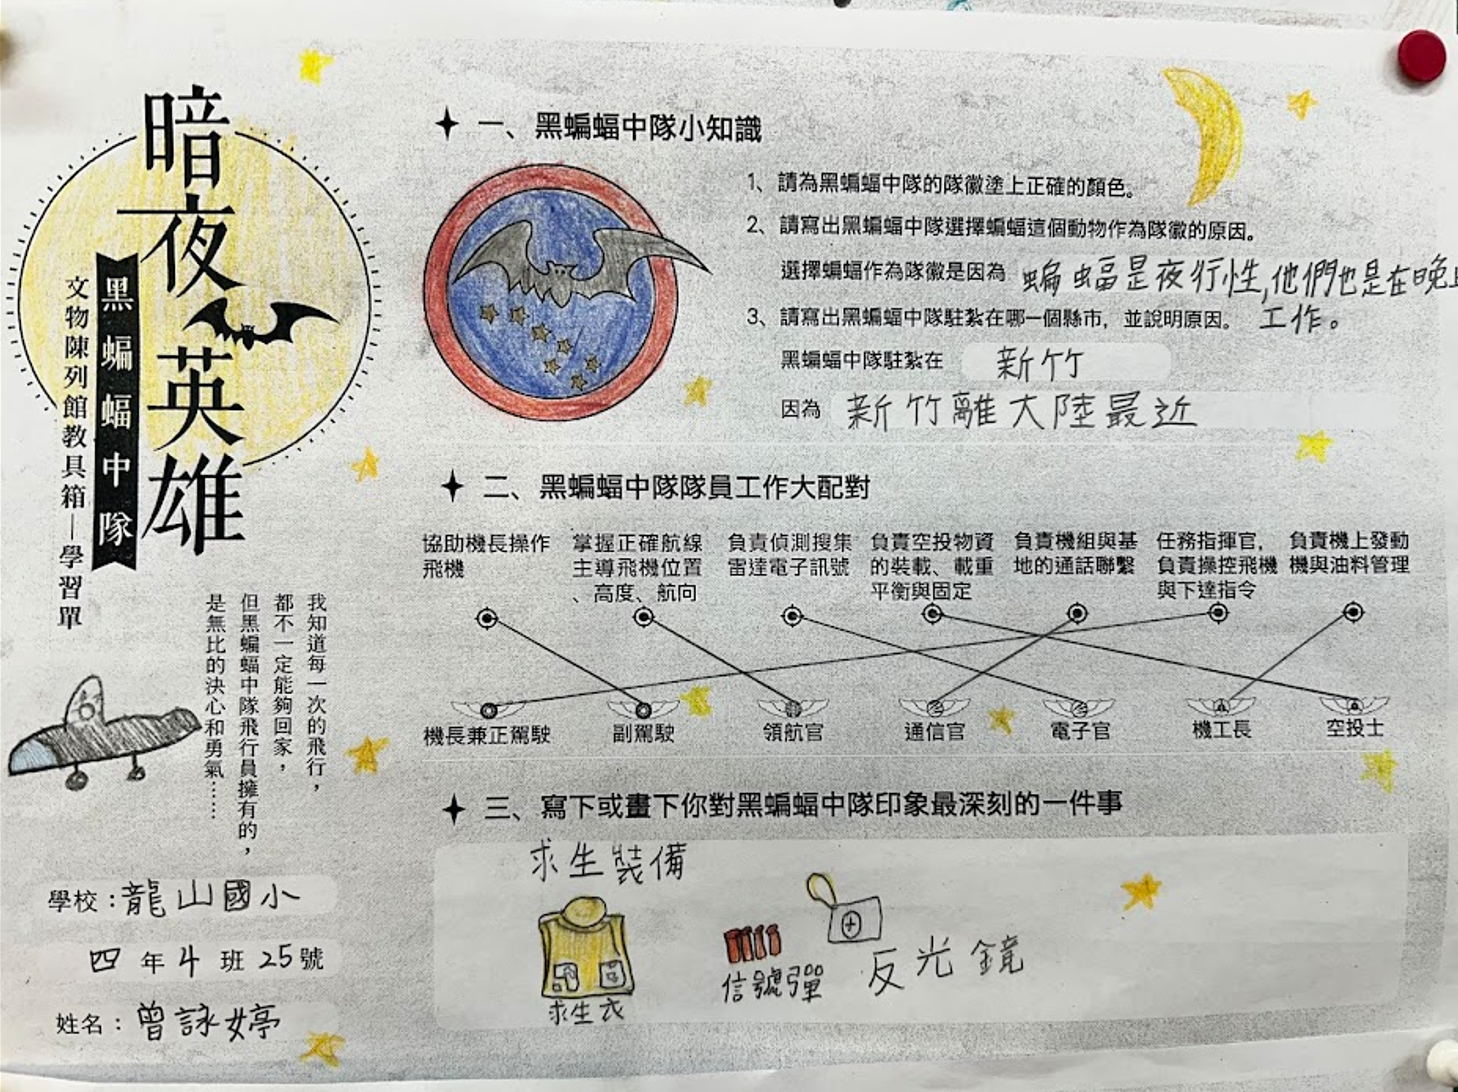 暗夜英雄
黑蝙蝠中隊
文物陳列館教具箱—學習單
我知道每一次的飛行，
都不一定能夠回家，
但黑蝙蝠中隊飛行員擁有的，
是無比的決心和勇氣……
學校：龍山國小
四年4班25號
姓名：曾詠婷
一、黑蝙蝠中隊小知識
1、請為黑蝙蝠中隊的隊徽塗上正確的顏色。
2、請寫出黑蝙蝠中隊選擇蝙蝠這個動物作為隊徽的原因。
選擇蝙蝠作為隊徽是因為 蝙蝠是夜行性,他們也是在晚上
工作。
3、請寫出黑蝙蝠中隊駐紮在哪一個縣市，並說明原因。
黑蝙蝠中隊駐紮在 新竹
因為 新竹離大陸最近
二、黑蝙蝠中隊隊員工作大配對
協助機長操作
飛機
掌握正確航線
主導飛機位置
、高度、航向
負責偵測搜集
雷達電子訊號
負責空投物資
的裝載、載重
平衡與固定
負責機組與基
地的通話聯繫
任務指揮官，
負責操控飛機
與下達指令
負責機上發動
機與油料管理
機長兼正駕駛 副駕駛 領航官 通信官 電子官 機工長 空投士
三、寫下或畫下你對黑蝙蝠中隊印象最深刻的一件事
求生裝備
求生衣
信號彈
反光鏡